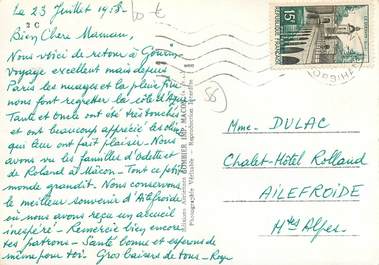 Le 23 Juillet 1958-
Bien Chère Maman,
Nous voici de retour à Gourin
voyage excellent mais depuis
Paris les nuages et la pluie fine
nous font regretter la côte d'Azur
Tante et oncle ont été très touchés
et ont beaucoup apprécié les olives
qui leur ont fait plaisir - Nous
avons vu les familles d'Odette et
de Roland à Macon - Tout ce petit
monde grandit. Nous conservons
le meilleur souvenir d'Ailefroide
où nous avons reçu un accueil
inespéré - Remercie bien encore
tes patrons - Santé bonne et espérons de
même pour toi. Gros baisers de tous - Roger
COMBIER IMP. MACON
Photographie Véritable - Reproduction Interdite
15F
MORBIHAN
Mme - DULAC
Chalet-Hôtel Rolland
AILEFROIDE
Htes Alpes.